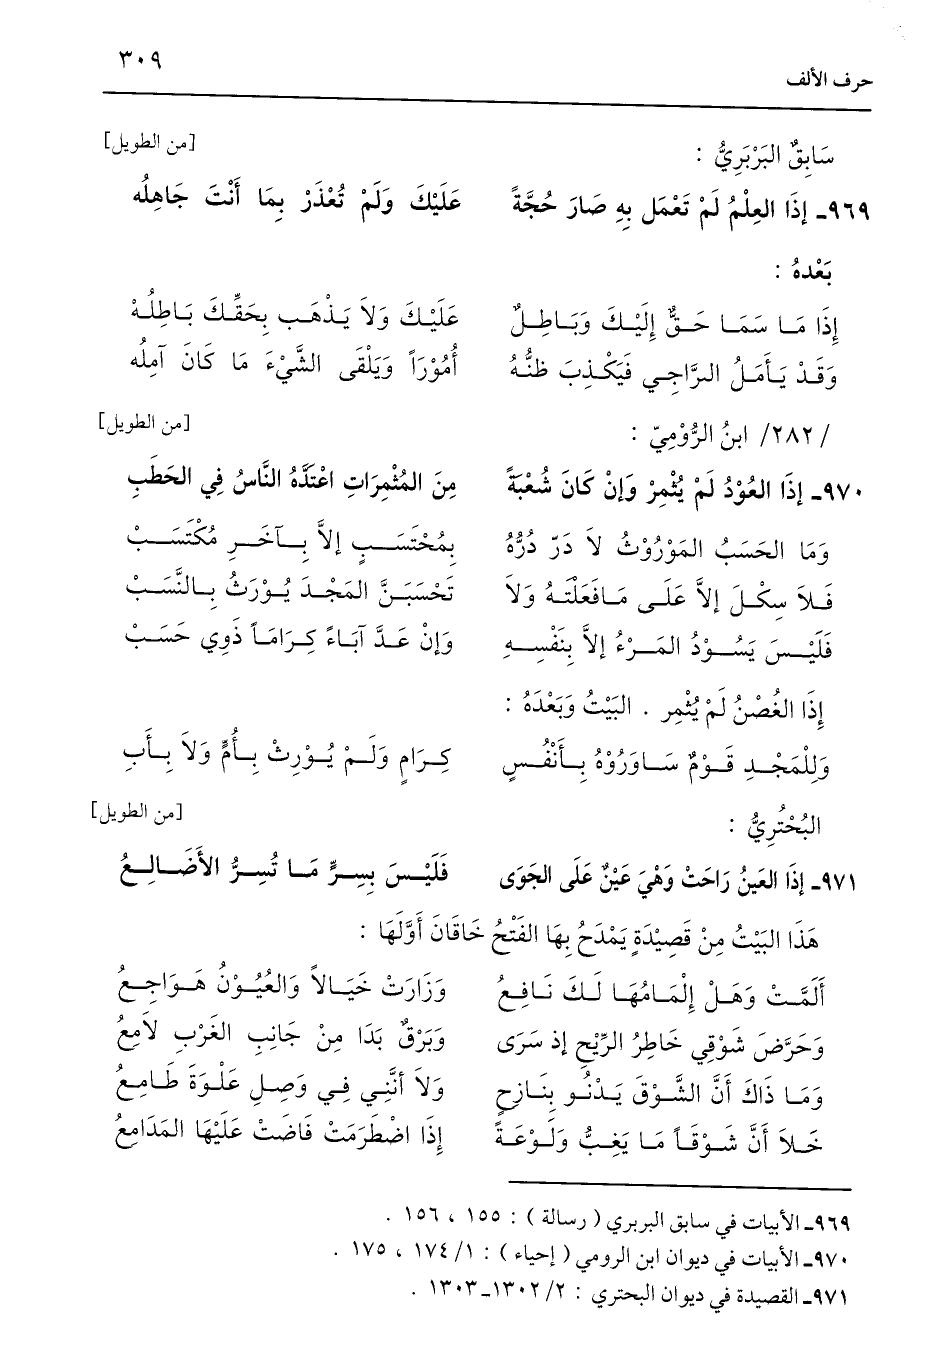 ٣٠٩
حرف الألف
سَابِقٌ البَرْبَرِيُّ : [من الطويل]
٩٦٩ـ إِذَا العِلْمُ لَمْ تَعْمَل بِهِ صَارَ حُجَّةً عَلَيْكَ وَلَمْ تُعْذَرْ بِمَا أَنْتَ جَاهِلُه
بَعْدهُ :
إِذَا مَا سَمَا حَقٌّ إِلَيْكَ وَبَاطِلٌ عَلَيْكَ وَلاَ يَذْهَب بِحَقِّكَ بَاطِلُهْ
وَقَدْ يَأمَلُ الرَّاجِي فَيَكْذِبَ ظَنُّهُ أُمُوْرَاً وَيَلْقَى الشَّيْءَ مَا كَانَ آمِلُه
/٢٨٢/ ابنُ الرُّوْمِيّ : [من الطويل]
٩٧٠ـ إِذَا العُوْدُ لَمْ يُثْمِرْ وَإِنْ كَانَ شُعْبَةً مِنَ المُثْمِرَاتِ اعْتَدَّهُ النَّاسُ فِي الحَطَبِ
وَمَا الحَسَبُ المَوْرُوْثُ لاَ دَرّ دُرُّهُ بِمُحْتَسَبٍ إِلاَّ بِآخَرِ مُكْتَسَبْ
فَلاَ سِكْلَ إِلاَّ عَلَى مَافَعَلْتَهُ وَلاَ تَحْسَبَنَّ المَجْدَ يُوْرَثُ بِالنَّسَبْ
فَلَيْسَ يَسُوْدُ المَرْءُ إِلاَّ بِنَفْسِهِ وَإِنْ عَدَّ آبَاءً كِرَامَاً ذَوِي حَسَبْ
إِذَا الغُصْنُ لَمْ يُثْمِر . البَيْتُ وَبَعْدَهُ :
وَلِلْمَجْدِ قَوْمٌ سَاوَرُوْهُ بِأَنْفُسٍ كِرَامٍ وَلَمْ يُوْرِثْ بِأُمٍّ وَلاَ بِأَبِ
البُحْتُرِيُّ : [من الطويل]
٩٧١ـ إِذَا العَينُ رَاحَتْ وَهْيَ عَيْنٌ عَلَى الجَوَى فَلَيْسَ بِسِرٍّ مَا تُسِرُّ الأَضَالِعُ
هَذَا البَيْتُ مِنْ قَصِيْدَةٍ يَمْدَحُ بِهَا الفَتْحُ خَاقَانَ أَوَّلَهَا :
أَلَمَّتْ وَهَلْ إِلْمَامُهَا لَكَ نَافِعُ وَزَارَتْ خَيَالاً وَالعُيُوْنُ هَوَاجِعُ
وَحَرَّضَ شَوْقِي خَاطِرُ الرِّيْحِ إِذ سَرَى وَبَرْقٌ بَدَا مِنْ جَانِبِ الغَرْبِ لاَمِعُ
وَمَا ذَاكَ أَنَّ الشَّوْقَ يَدْنُو بِنَازِحٍ وَلاَ أَنَّنِي فِي وَصِلِ عَلْوَةَ طَامِعُ
خَلاَ أَنَّ شَوْقَاً مَا يَغِبُّ وَلَوْعَةً إِذَا اضْطَرَمَتْ فَاضَتْ عَلَيْهَا المَدَامِعُ
٩٦٩ـ الأبيات في سابق البربري ( رسالة ) : ١٥٥ ، ١٥٦ .
٩٧٠ـ الأبيات في ديوان ابن الرومي ( إحياء ) : ١/ ١٧٤ ، ١٧٥ .
٩٧١ـ القصيدة في ديوان البحتري : ٢/ ١٣٠٢ـ١٣٠٣ .